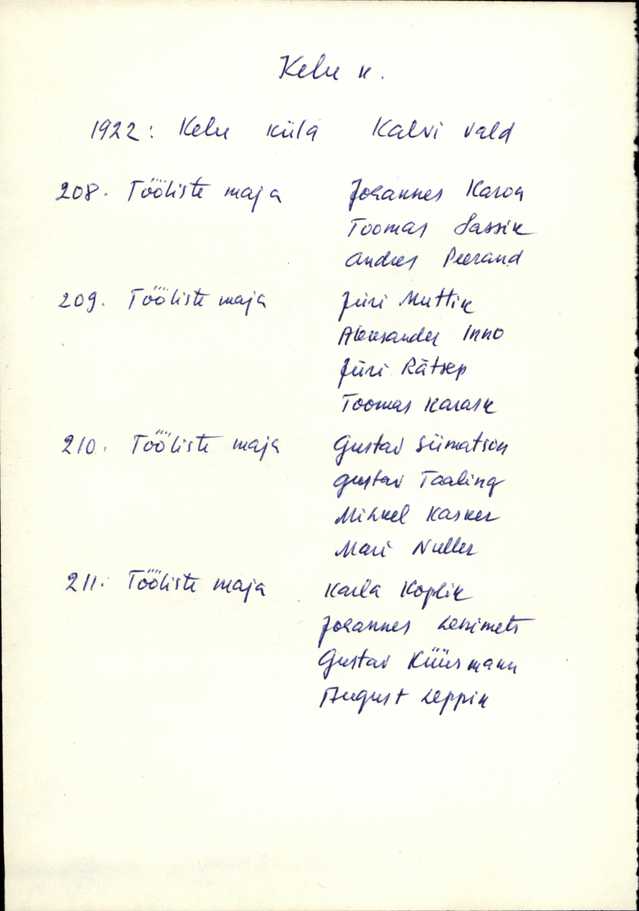 Kelu k.
1922: Kelu küla Kalvi vald
208. Tööliste maja Johannes Karon
Toomas Sassik
Andres Peerand
209. Tööliste maja Jüri Muttik
Aleksander Inno
Jüri Rätsep
Toomas Karask
210. Tööliste maja Gustav Siimatson
Gustav Taaling
Mihkel Kasker
Mari Nuller
211. Tööliste maja Karla Koplik
Johannes
Gustav Küürmann
August Leppik